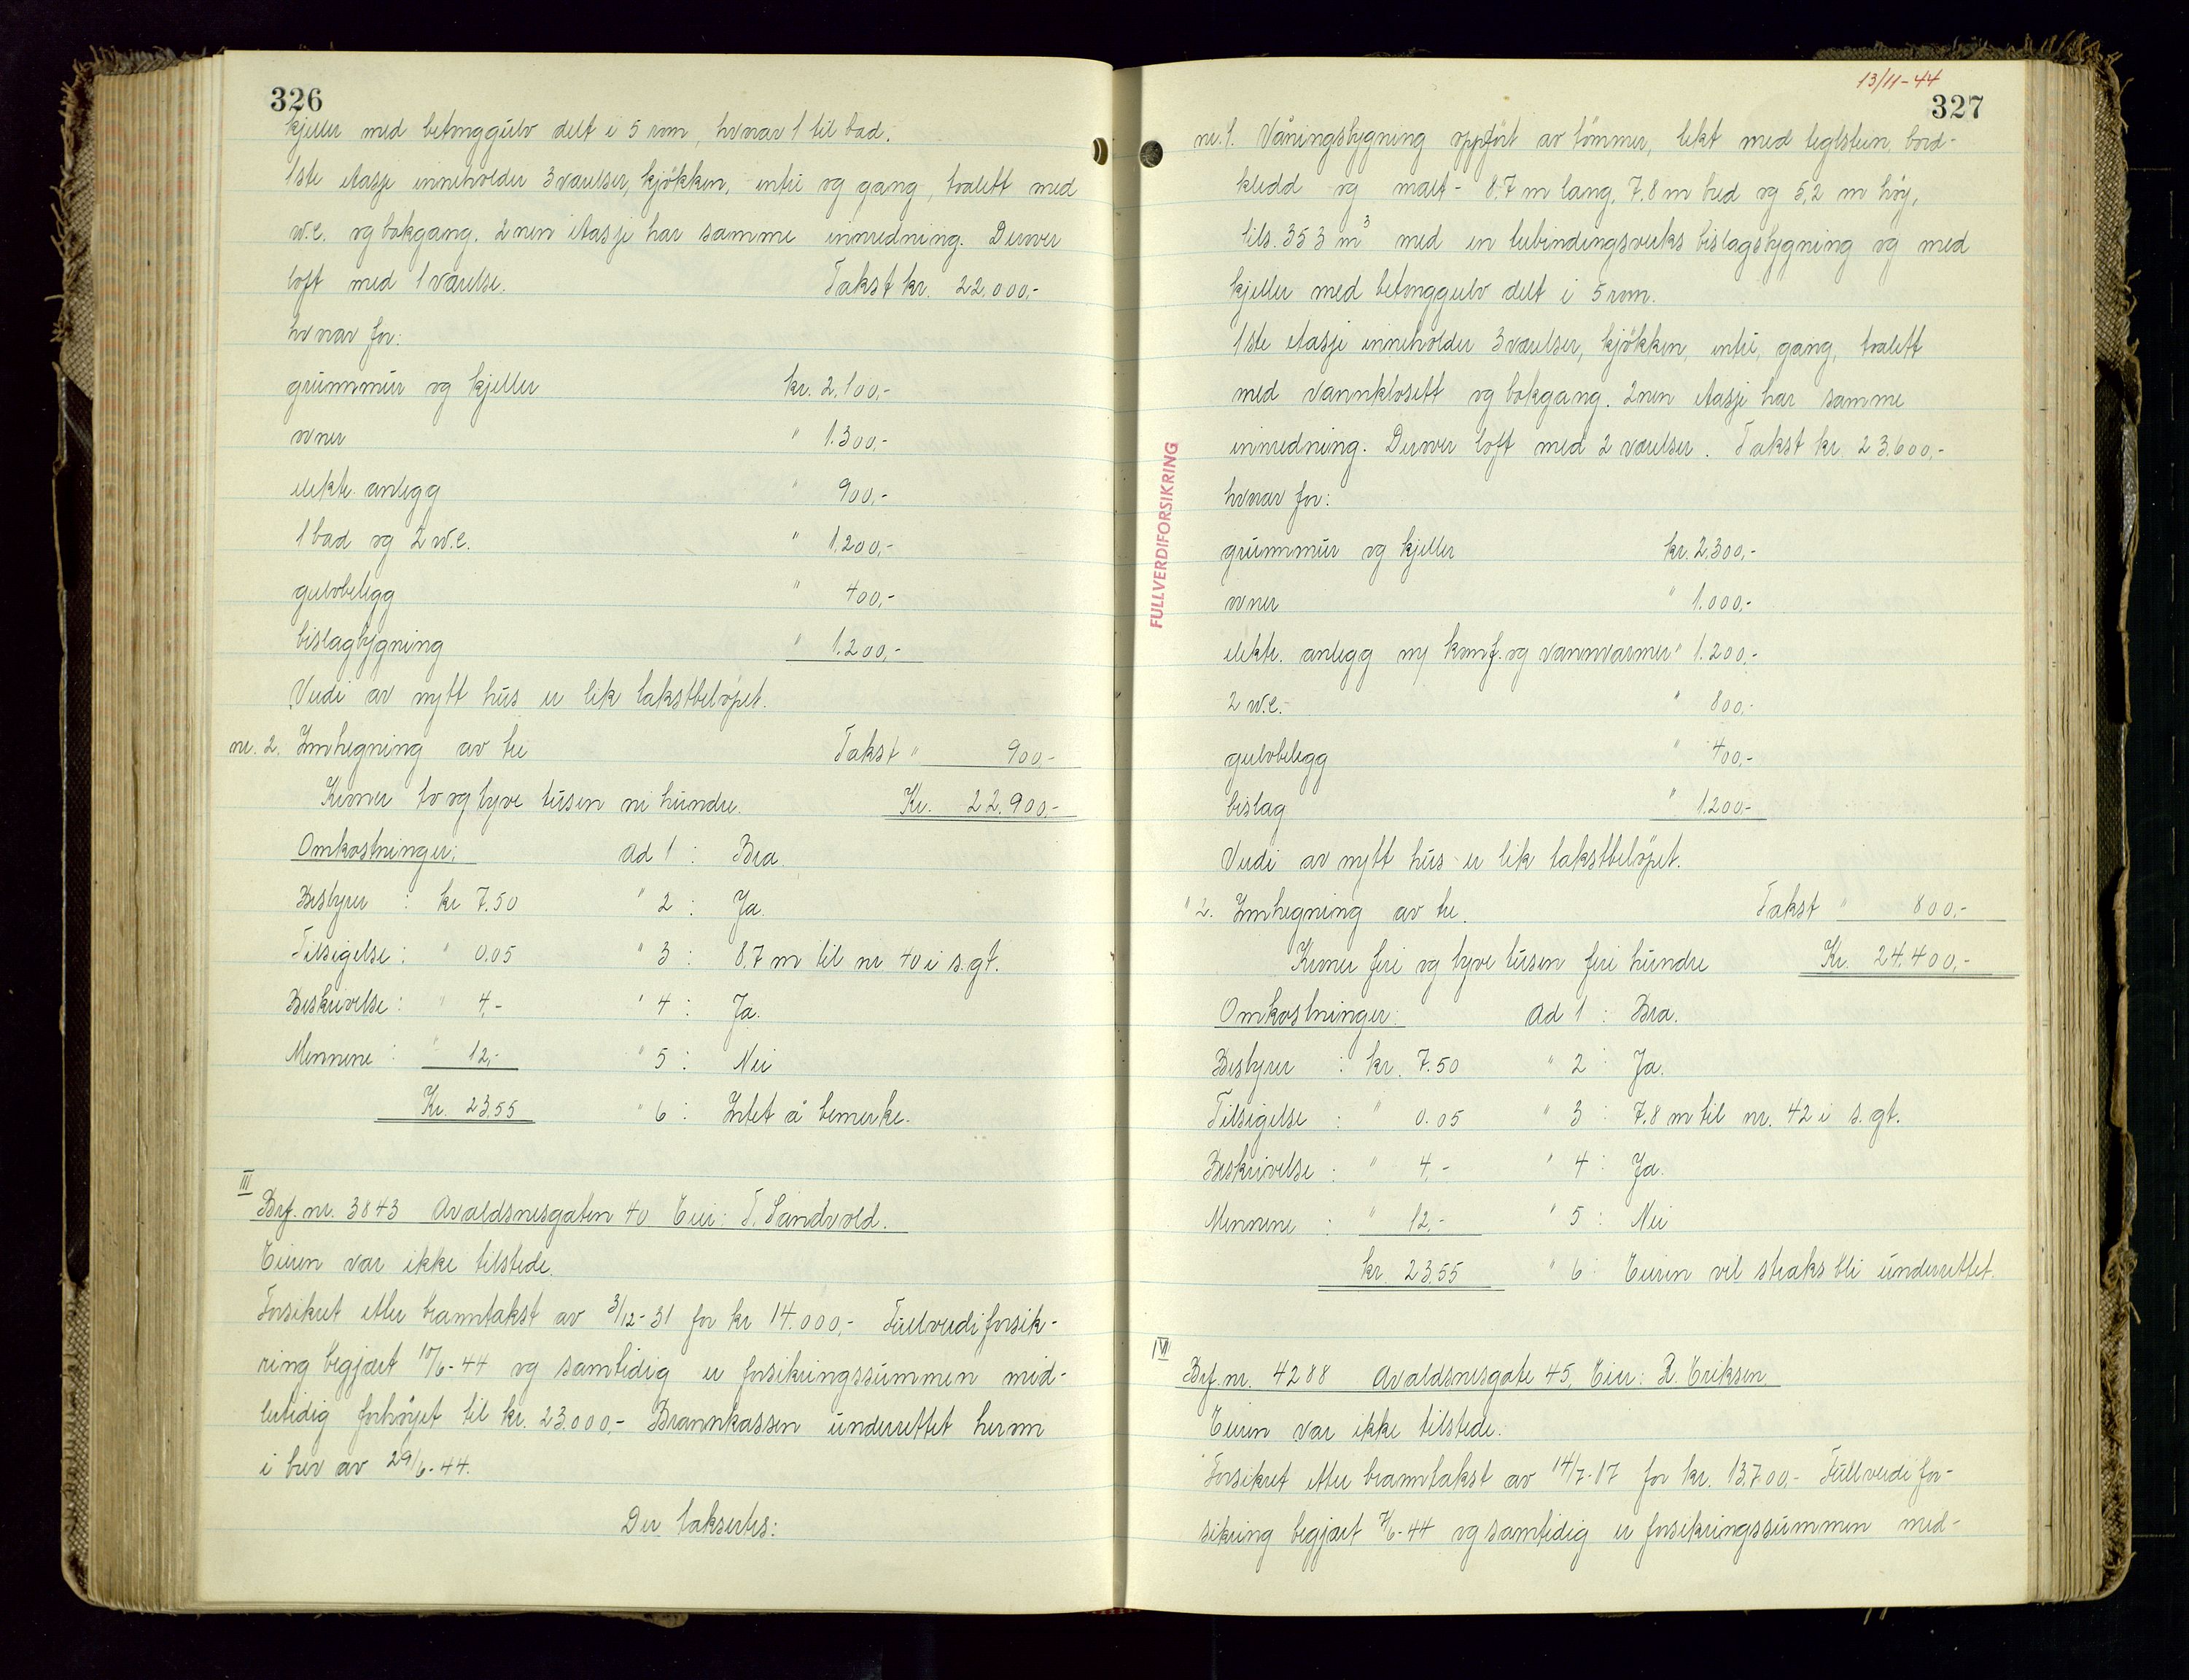 326
kjeller med betonggulv delt i 5 rom, hvorav 1 til bad.
1ste etasje inneholder 3 værelser, kjøkken, entré og gang, toalett med
w.c. og bakgang. 2nen etasje har samme innredning. Derover
loft med 1 værelse. Takst kr. 22.000,-
hvorav for:
grunnmur og kjeller kr. 2.100,-
ovner " 1.300,-
elektr. anlegg " 900,-
1 bad og 2 w.c. " 1.200,-
gulvbelegg " 400,-
bislagbygning " 1.200,-
Verdi av nytt hus er lik takstbeløpet.
nr. 2. Innhegning av tre Takst " 900,-
Kroner to og tyve tusen ni hundre. Kr. 22.900,-
Omkostninger: Ad 1 : Bra.
Bestyrer : kr 7.50 " 2 : Ja.
Tilsigelse : " 0.05 " 3 : 8,7 m til nr 40 i s.gt.
Beskrivelse : " 4,- " 4 : Ja.
Mennene : " 12,- " 5 : Nei
Kr. 23.55 " 6 : Intet å bemerke.
III
Brf. nr. 3843 Avaldsnesgaten 40 Eier: T. Sandvold.
Eieren var ikke tilstede.
Forsikret etter branntakst av 3/12-31 for kr 14.000,- Fullverdiforsik-
ring begjært 10/6-44 og samtidig er forsikringssummen mid-
lertidig forhøyet til kr. 23.000,- Brannkassen underrettet herom
i brev av 29/6-44.
Der taksertes:
13/11-44
327
nr. 1. Våningsbygning oppført av tømmer, tekt med teglsten, bord-
kledd og malt - 8,7 m lang, 7.8 m bred og 5,2 m høy,
tils. 353 m³ med en utbindingsverks bislagsbygning og med
kjeller med betonggulv delt i 5 rom.
1ste etasje inneholder 3 værelser, kjøkken, entré, gang, toalett
med vannklosett og bakgang. 2nen etasje har samme
innredning. Derover loft med 2 værelser. Takst kr. 23.600,-
hvorav for:
FULLVERDIFORSIKRING
grunnmur og kjeller kr. 2.300,-
ovner " 1.000,-
elektr. anlegg ny komf. og vannvarmer " 1.200,-
2 w.c. " 800,-
gulvbelegg " 400,-
bislag " 1.200,-
Verdi av nytt hus er lik takstbeløpet.
" 2. Innhegning av tre. Takst " 800,-
Kroner fire og tyve tusen fire hundre Kr. 24.400,-
Omkostninger: Ad 1 : Bra.
Bestyrer : kr. 7.50 " 2 : Ja.
Tilsigelse : " 0.05 " 3 : 7.8 m til nr. 42 i s.gt.
Beskrivelse : " 4,- " 4 : Ja.
Mennene : " 12,- " 5 : Nei
kr. 23.55 " 6 : Eieren vil straks bli underrettet.
IV
Brf. nr. 4288 Avaldsnesgate 45, Eier: R. Eriksen.
Eieren var ikke tilstede.
Forsikret etter branntakst av 14/7-17 for kr. 13.700,- Fullverdifor-
sikring begjært 7/6-44 og samtidig er forsikringssummen mid-